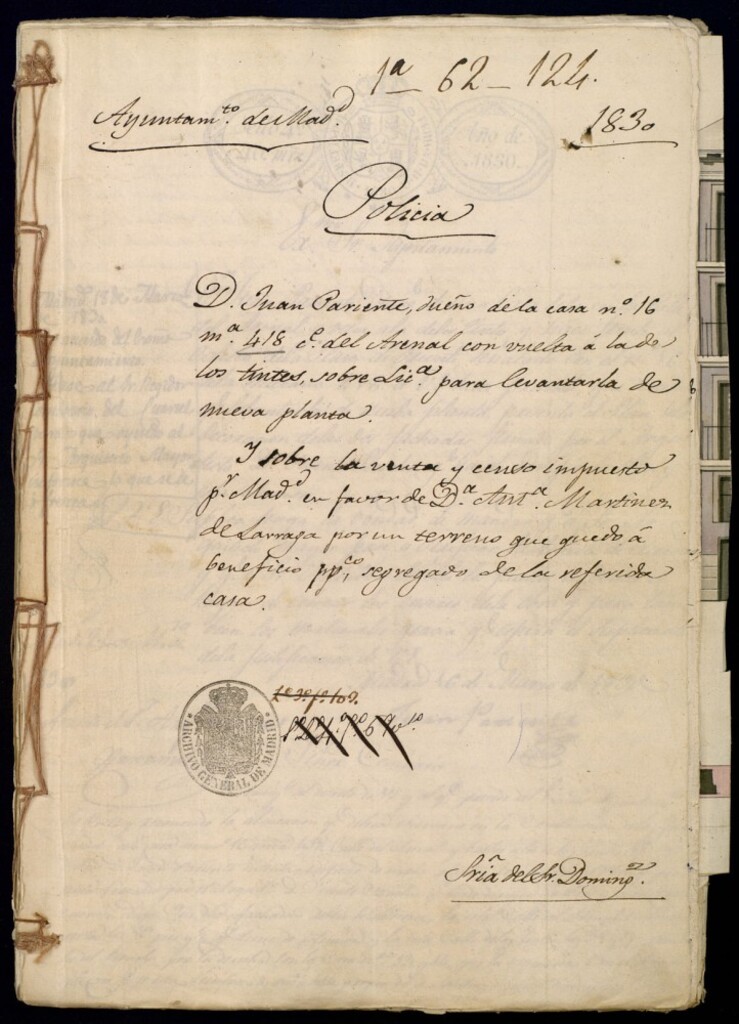 1ª - 62 - 124.
Ayuntam.to de Mad.d
1830
Policia
D. Juan Pariente, dueño de la casa n.º 16
m.a 418 c.e del Arenal con vuelta á la de
los tintes, sobre Lic.a para levantarla de
nueva planta.
Y sobre la venta y censo impuesto
p.r Mad.d en favor de D.a Ant.a Martinez
de Larraga por un terreno que quedó á
beneficio pp.co, segregado de la referida
casa.
ARCHIVO GENERAL DE MADRID
Sría del Sr. Doming.z